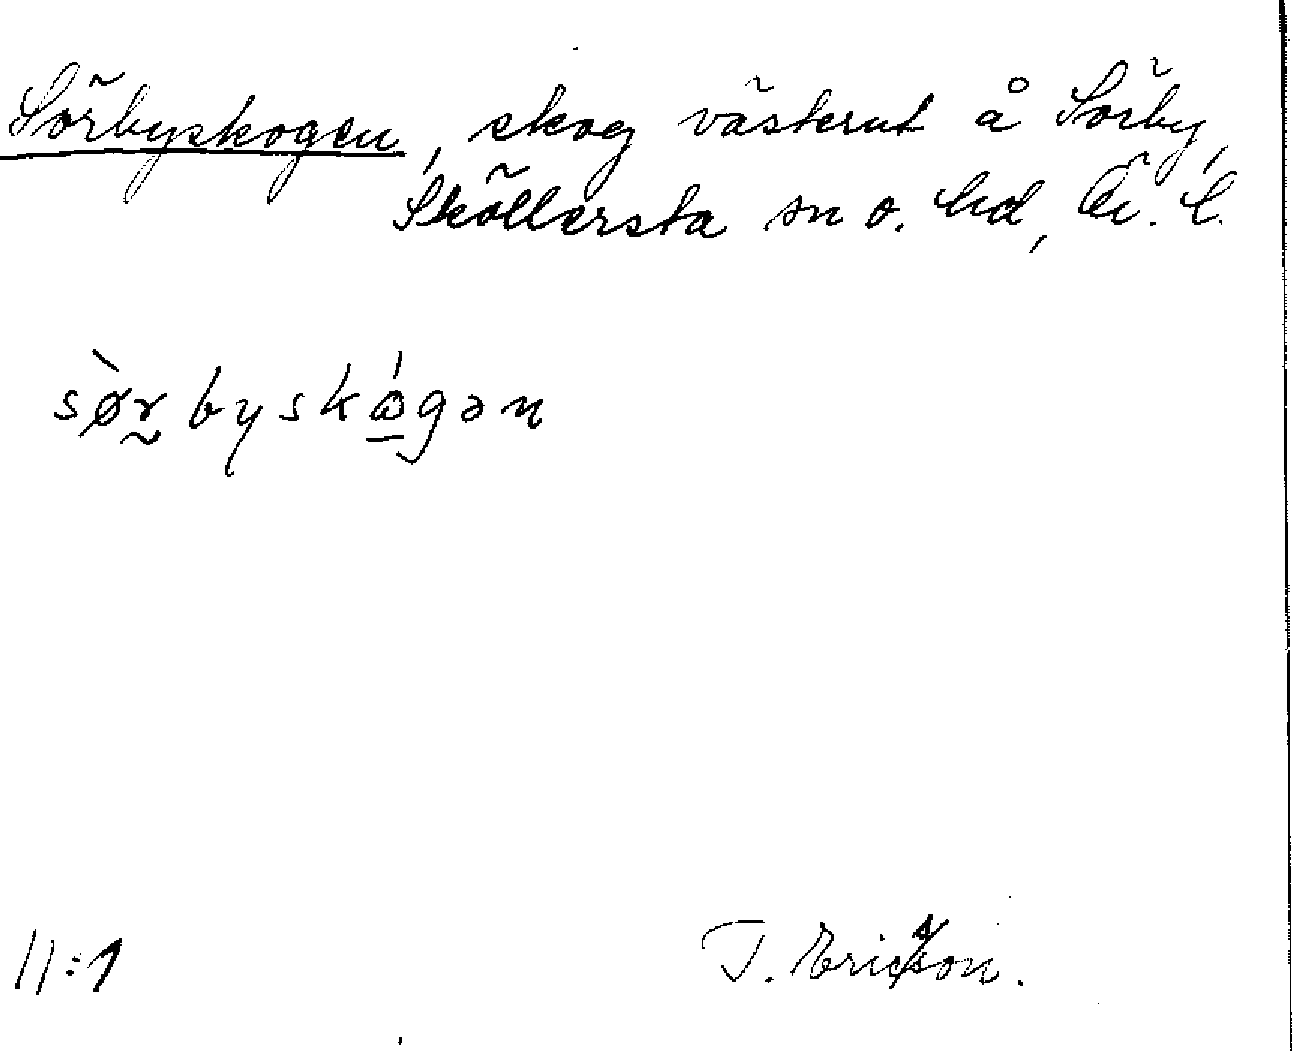 Sörbyskogen, skog västerut å Sörby,
Sköllersta sn o. hd, Ör. l.
sø̀rbyskógən
11:1
T. Ericsson.